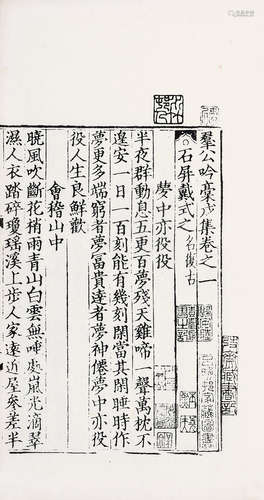 羣公吟藁戊集卷之一
石屏戴式之 名復古
夢中亦役役
半夜群動息五更百夢殘天雞啼一聲萬枕不
遑安一日一百刻能有幾刻閑當其閑睡時作
夢更多端窮者夢富貴達者夢神僊夢中亦役
役人生良鮮歡
會稽山中
曉風吹斷花梢雨青山白雲無唾處嵐光滴翠
濕人衣踏碎瓊瑤溪上步人家遠近屋參差半